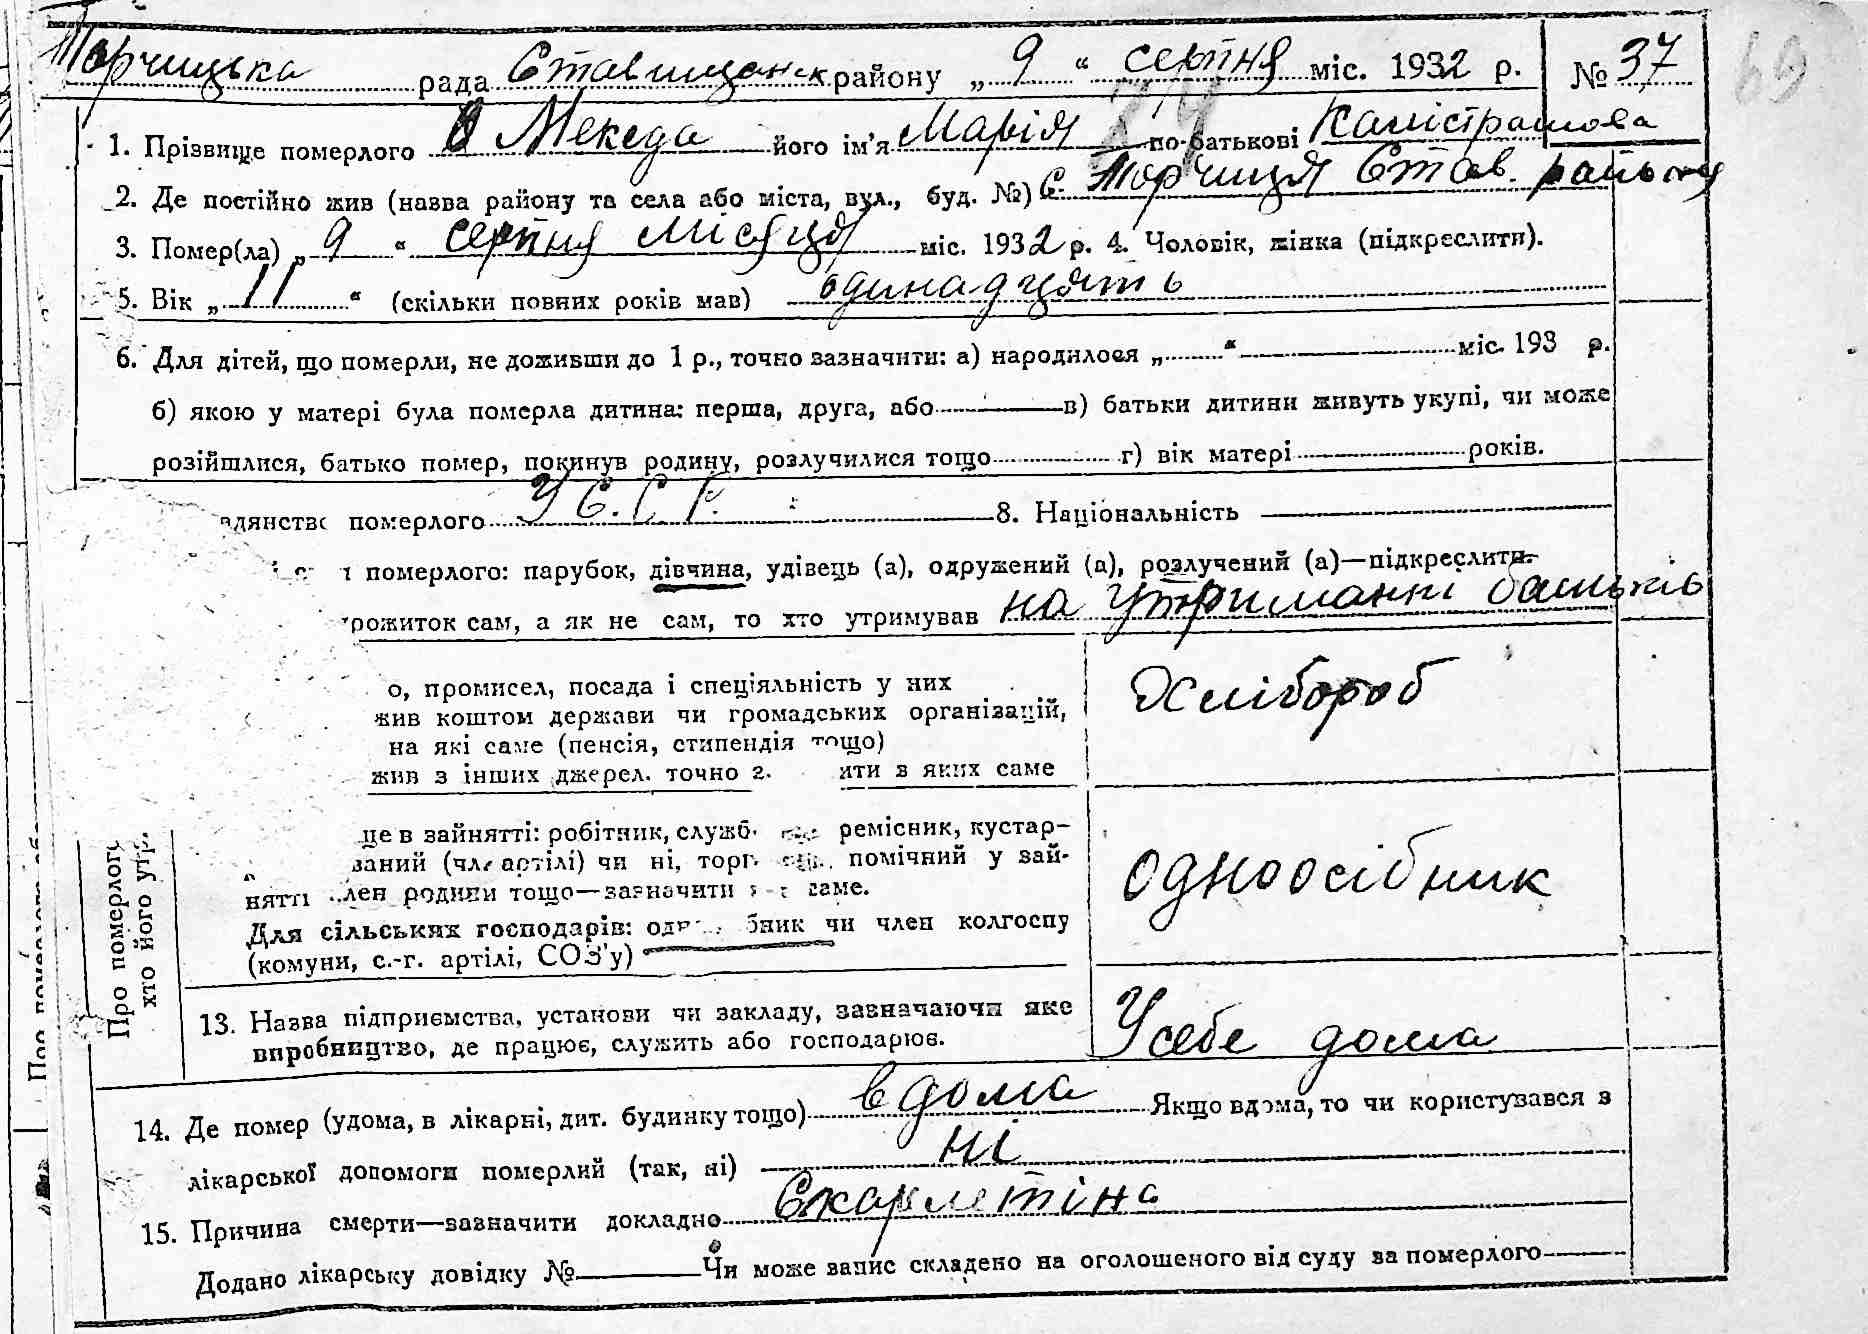 Торчицька рада Ставищанськ району „ 9 “ серпня міс. 1932 р. № 37
69
24
1. Прізвище померлого Мекеда його ім’я Марія по-батькові Калістратова
2. Де постійно жив (назва району та села або міста, вул., буд. №) С. Торчиця Став. району
3. Помер(ла) „ 9 “ серпня місяця міс. 1932 р. 4. Чоловік, жінка (підкреслити).
5. Вік „ 11 “ (скільки повних років мав) одинадцять
6. Для дітей, що померли, не доживши до 1 р., точно зазначити: а) народилося „ “ міс. 193 р.
б) якою у матері була померла дитина: перша, друга, або в) батьки дитини живуть укупі, чи може
розійшлися, батько помер, покинув родину, розлучилися тощо г) вік матері років.
адянство померлого У.С.С.Р. 8. Національність
померлого: парубок, дівчина, удівець (а), одружений (а), розлучений (а)—підкреслити.
прожиток сам, а як не сам, то хто утримував на утриманні батьків
о, промисел, посада і спеціяльність у них Хлібороб
жив коштом держави чи громадських організацій,
на які саме (пенсія, стипендія тощо)
жив з інших джерел. точно з ити з яких саме
Про померлого
хто його утр
ще в зайнятті: робітник, служб ремісник, кустар-
ваний (чл. артілі) чи ні, торг помічний у зай-
нятті лен родини тощо—зазначити саме. одноосібник
Для сільських господарів: одн бник чи член колгоспу
(комуни, с.-г. артілі, СОЗ’у)
13. Назва підприємства, установи чи закладу, зазначаючи яке
виробництво, де працює, служить або господарює. У себе дома
14. Де помер (удома, в лікарні, дит. будинку тощо) вдома Якщо вдома, то чи користувався з
лікарської допомоги померлий (так, ні) ні
15. Причина смерти—зазначити докладно Скарлетіна
Додано лікарську довідку № Чи може запис складено на оголошеного від суду за померлого